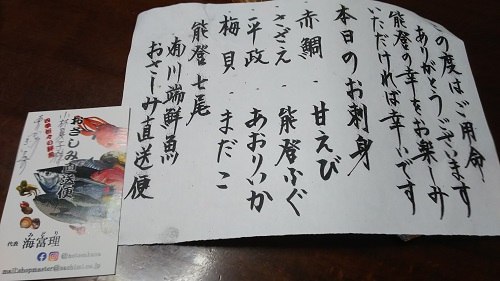 の度はご用命
ありがとうございます
能登の幸をお楽しみ
いただければ幸いです
本日のお刺身
赤鯛・甘えび
さざえ・能登ふぐ
平政・あおりいか
梅貝・まだこ
能登七尾
川端鮮魚
おさしみ直送便
おさしみ直送便
代表 海富理